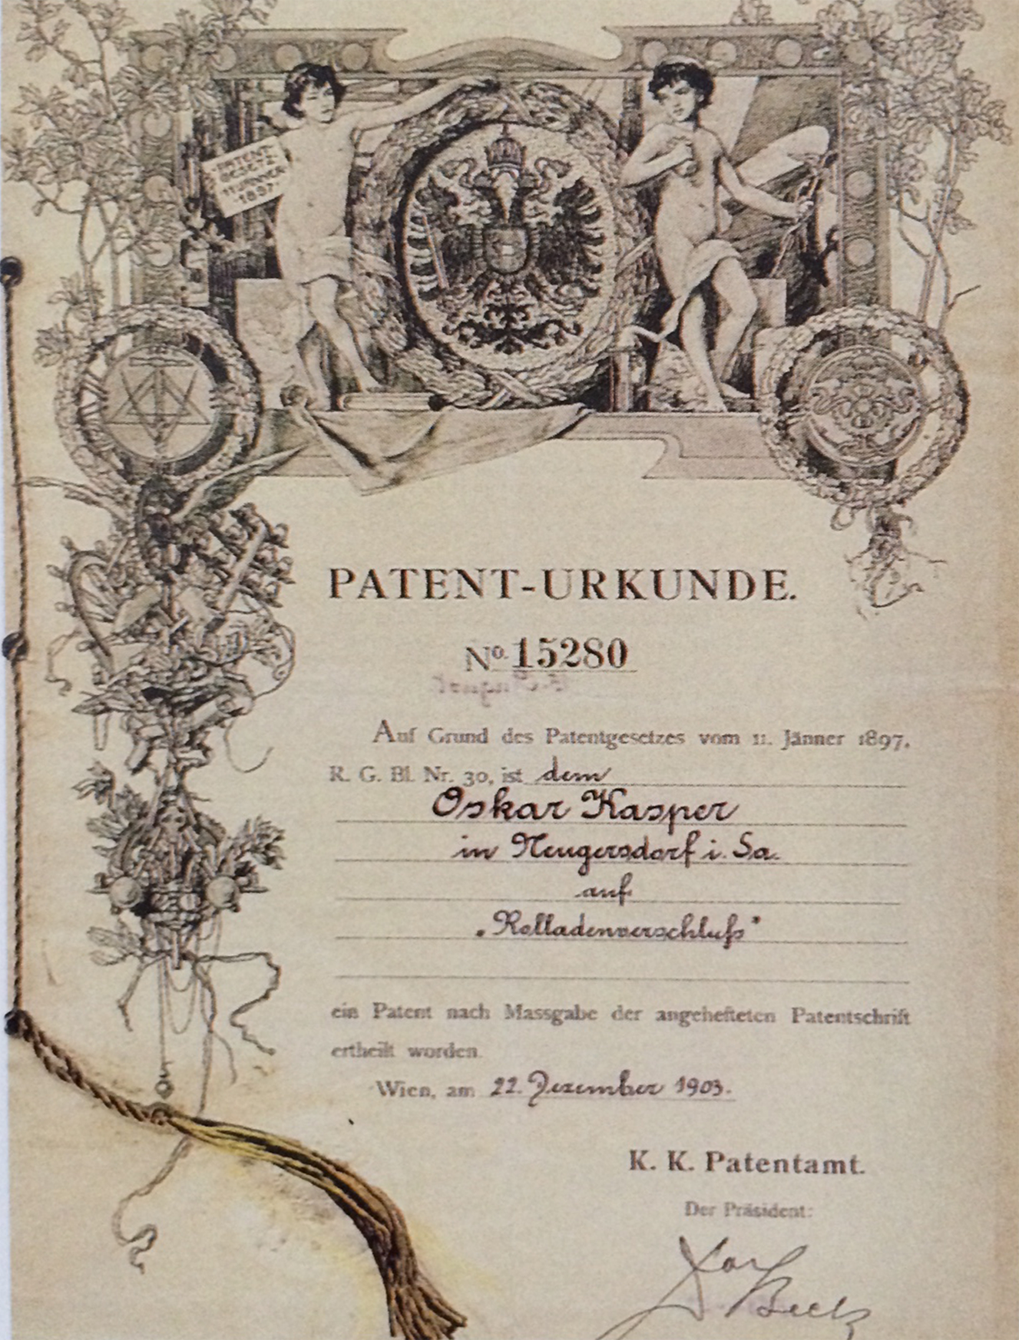 PATENT
GESETZ
11. JÄNNER
1897.
PATENT-URKUNDE.
No. 15280
Auf Grund des Patentgesetzes vom 11. Jänner 1897,
R. G. Bl. Nr. 30, ist dem
Oskar Kasper
in Neugersdorf i. Sa.
auf
„Rolladenverschluß"
ein Patent nach Massgabe der angehefteten Patentschrift
ertheilt worden.
Wien, am 22. Dezember 1903.
K. K. Patentamt.
Der Präsident:
Beck